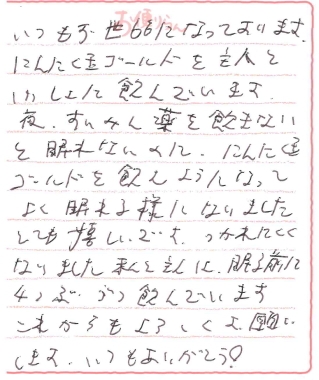 お便りらん
いつもお世話になっております。
にんにく玉ゴールドを主人と
いっしょに飲んでいます。
夜、すいみん薬を飲まない
と眠れないのに、にんにく玉
ゴールドを飲むようになって
よく眠れる様になりました
とても嬉しいです。つかれにくく
なりました私と主人は、眠る前に
4つぶづつ飲んでいます
これからもよろしくお願い
します。いつもありがとう!